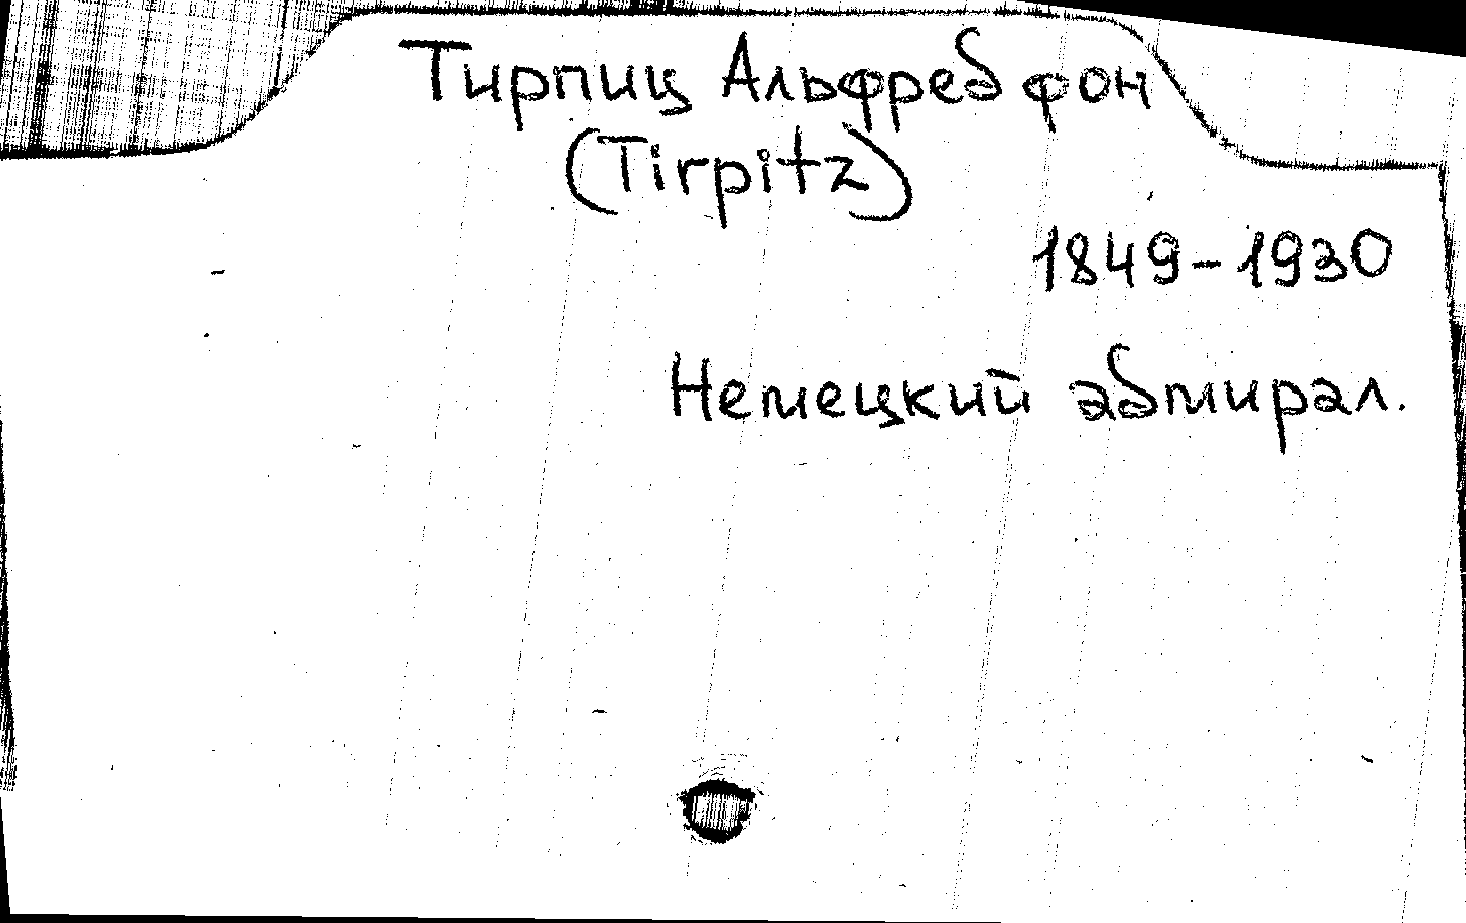 Тирпиц Альфред фон
(Tirpitz)
1849-1930
Немецкий адмирал.